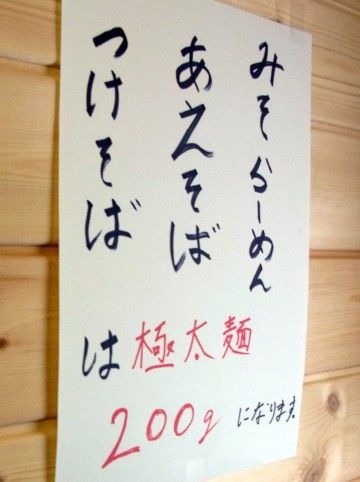 みそらーめん
あえそば
つけそば
は極太麺
200gになります。